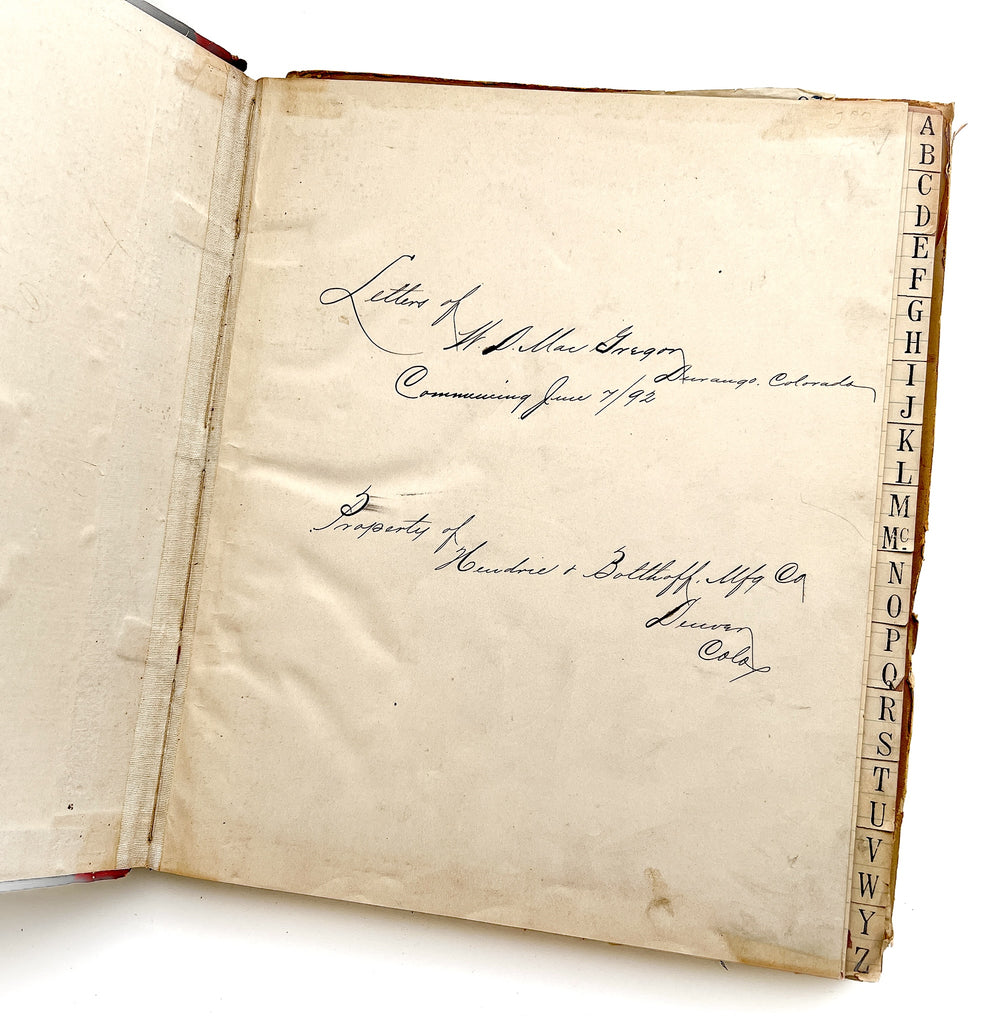 Letters of
W. D. Mac Gregor
Durango. Colorado
Commencing June 7/92
Property of
Hendrie & Bolthoff. Mfg Co
Denver
Colo
A
B
C
D
E
F
G
H
I
J
K
L
M
Mc.
N
O
P
Q
R
S
T
U
V
W
Y
Z